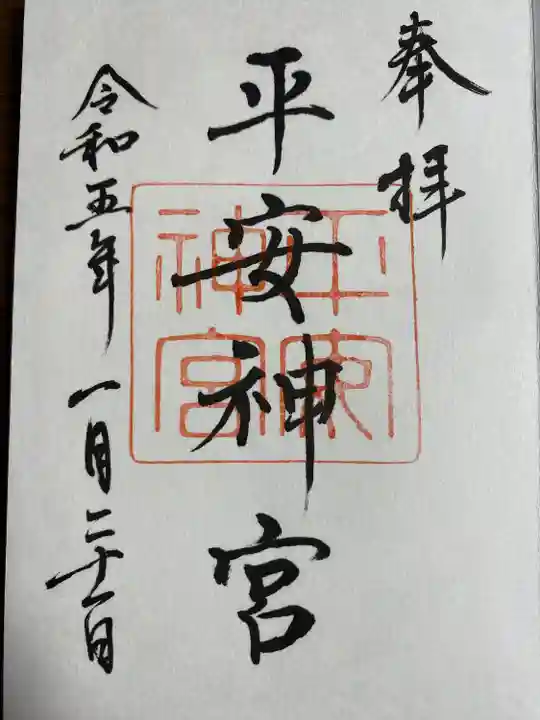 奉拝
平安神宮
平安神宮
令和五年 一月二十一日